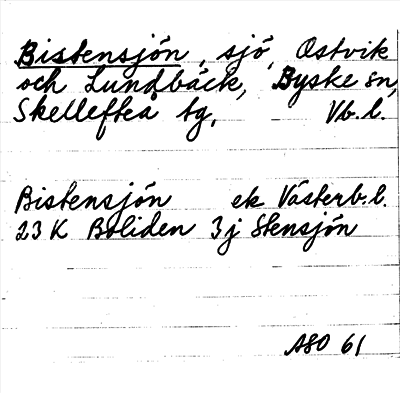 Bistensjön, sjö, Ostvik
och Lundbäck, Byske sn,
Skellefteå tg, Vb.l.
Bistensjön ek Västerb.l.
23 K Boliden 3j Stensjön
ASO 61